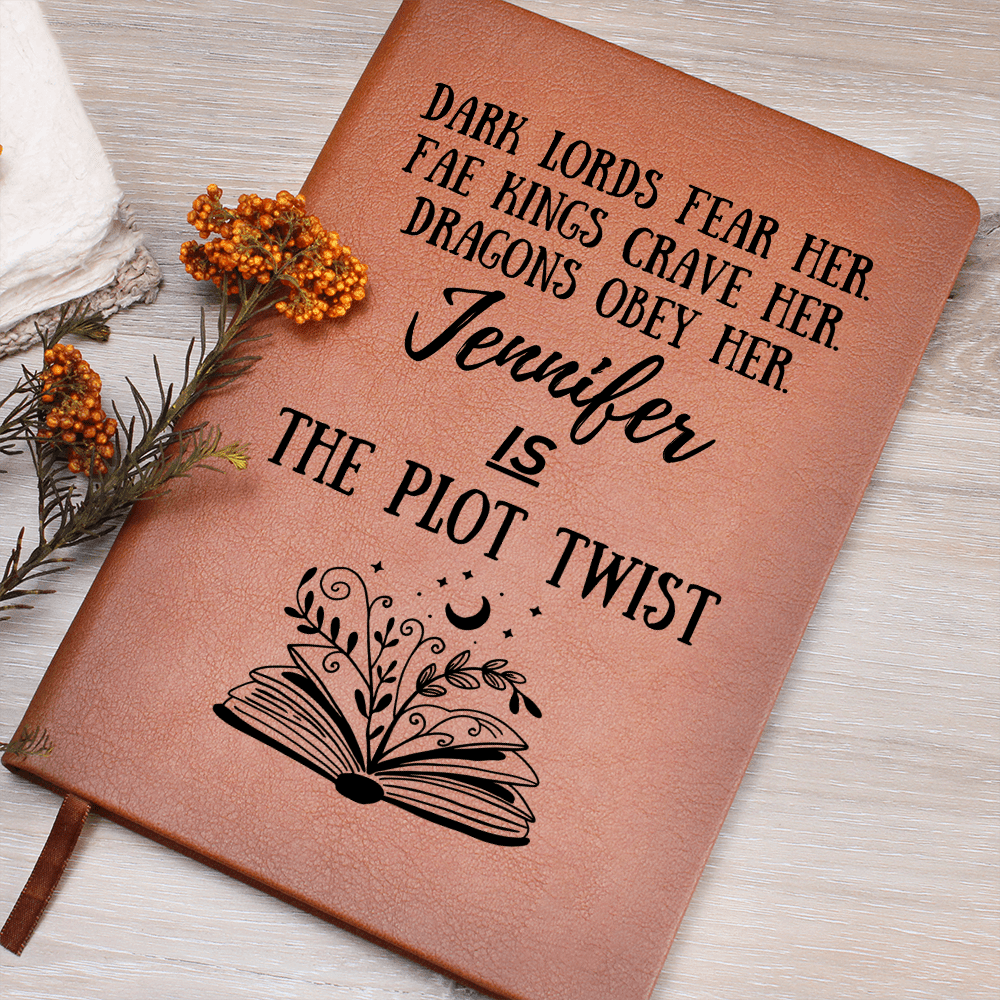 DARK LORDS FEAR HER.
FAE KINGS CRAVE HER.
DRAGONS OBEY HER.
Jennifer
IS
THE PLOT TWIST